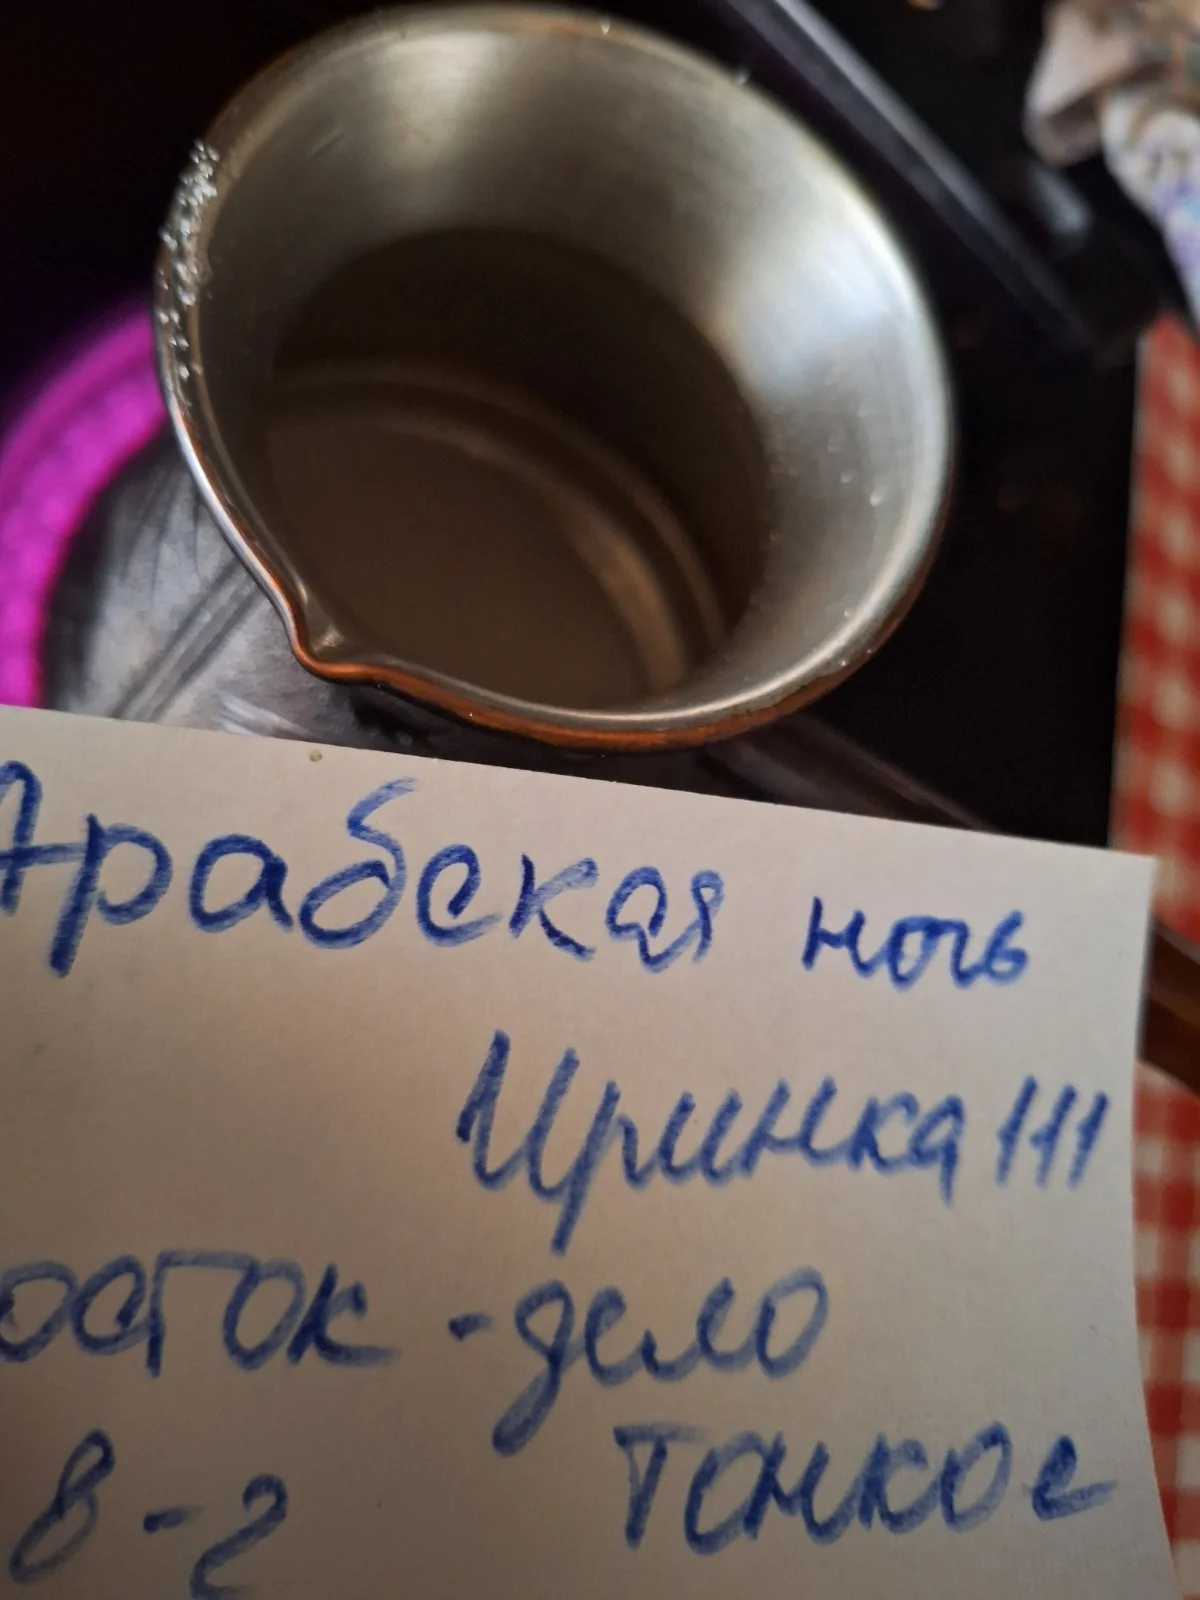 Арабская ночь
Иринка!!!
осток - дело
тонкое
8-2